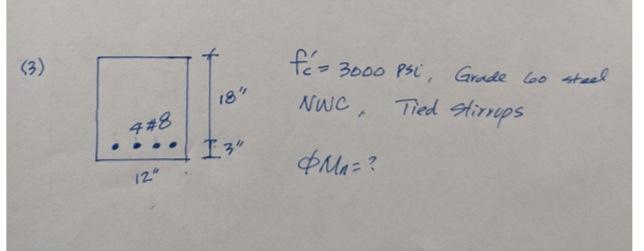 (3)
f'c = 3000 PSi, Grade 60 steel
18"
NWC, Tied stirrups
4#8
3"
ϕMn = ?
12"